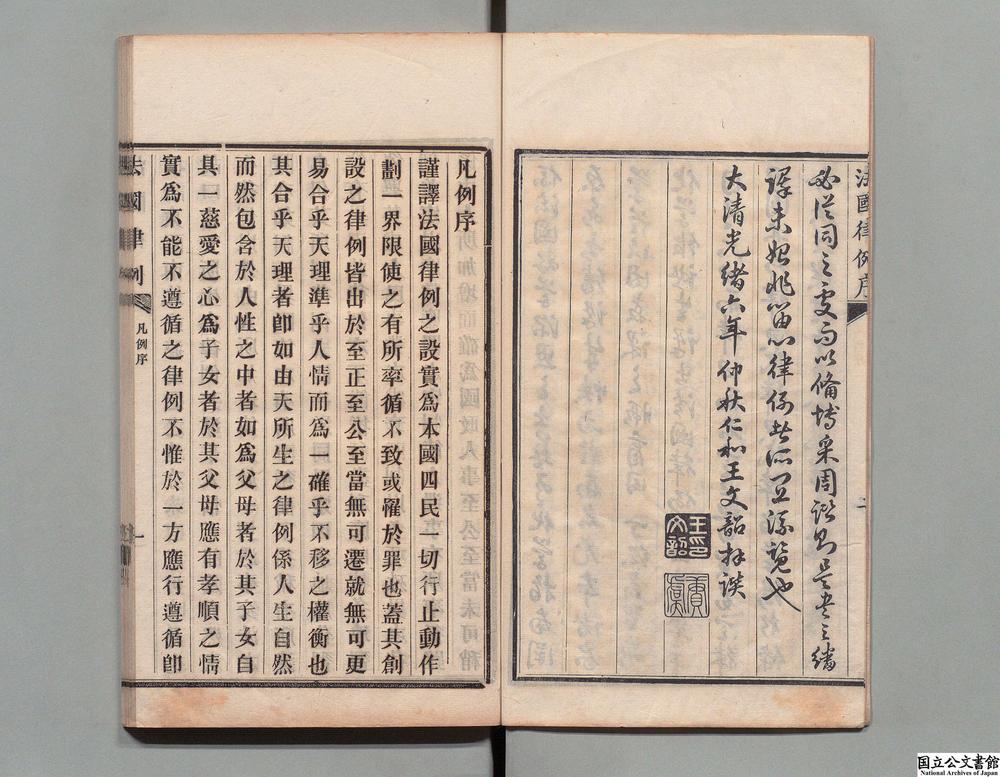 法國律例序
二
必從同之處而以備博采周諮則是書之繙
譯未始非留心律例者所宜流覽也
大清光緒六年仲秋仁和王文韶拜譔
王文韶印
賡虞
凡例序
謹譯法國律例之設實爲本國四民一切行止動作
劃一界限使之有所率循不致或罹於罪也蓋其創
設之律例皆出於至正至公至當無可遷就無可更
易合乎天理準乎人情而爲一確乎不移之權衡也
其合乎天理者卽如由天所生之律例係人生自然
而然包含於人性之中者如爲父母者於其子女自
具一慈愛之心爲子女者於其父母應有孝順之情
實爲不能不遵循之律例不惟於一方應行遵循卽
法國律例
凡例序
一
国立公文書館
National Archives of Japan